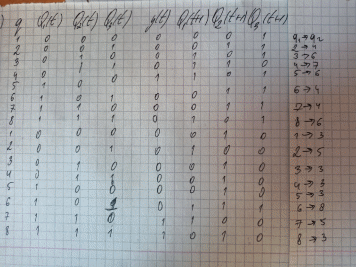 q Q₁(t) Q₂(t) Q₃(t) y(t) Q₁(t+1) Q₂(t+1) Q₃(t+1)
1 0 0 0 0 0 0 1 q₁→q₂
2 0 0 1 0 0 1 1 2→4
3 0 1 0 0 1 0 1 3→6
4 0 1 1 0 1 1 0 4→7
5 1 0 0 1 1 0 1 5→6
6 1 0 1 0 0 1 1 6→4
7 1 1 0 0 0 1 1 7→4
8 1 1 1 0 1 0 1 8→6
1 0 0 0 0 0 1 0 1→3
2 0 0 1 0 1 0 0 2→5
3 0 1 0 0 0 1 0 3→3
4 0 1 1 0 0 1 0 4→3
5 1 0 0 0 0 1 0 5→3
6 1 0 1 0 1 1 1 6→8
7 1 1 0 1 1 0 0 7→5
8 1 1 1 1 0 1 0 8→3